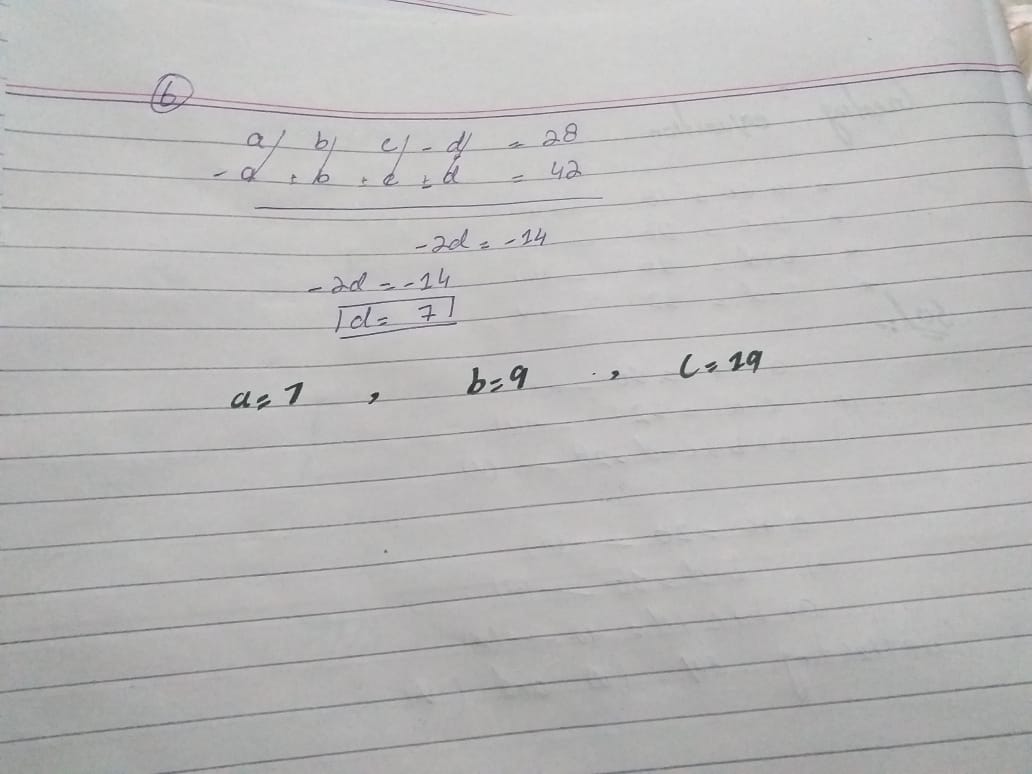 6
a b c - d = 28
- a + b + c + d = 42
-2d = -14
-2d = -14
d = 7
a = 7 , b = 9 , c = 19